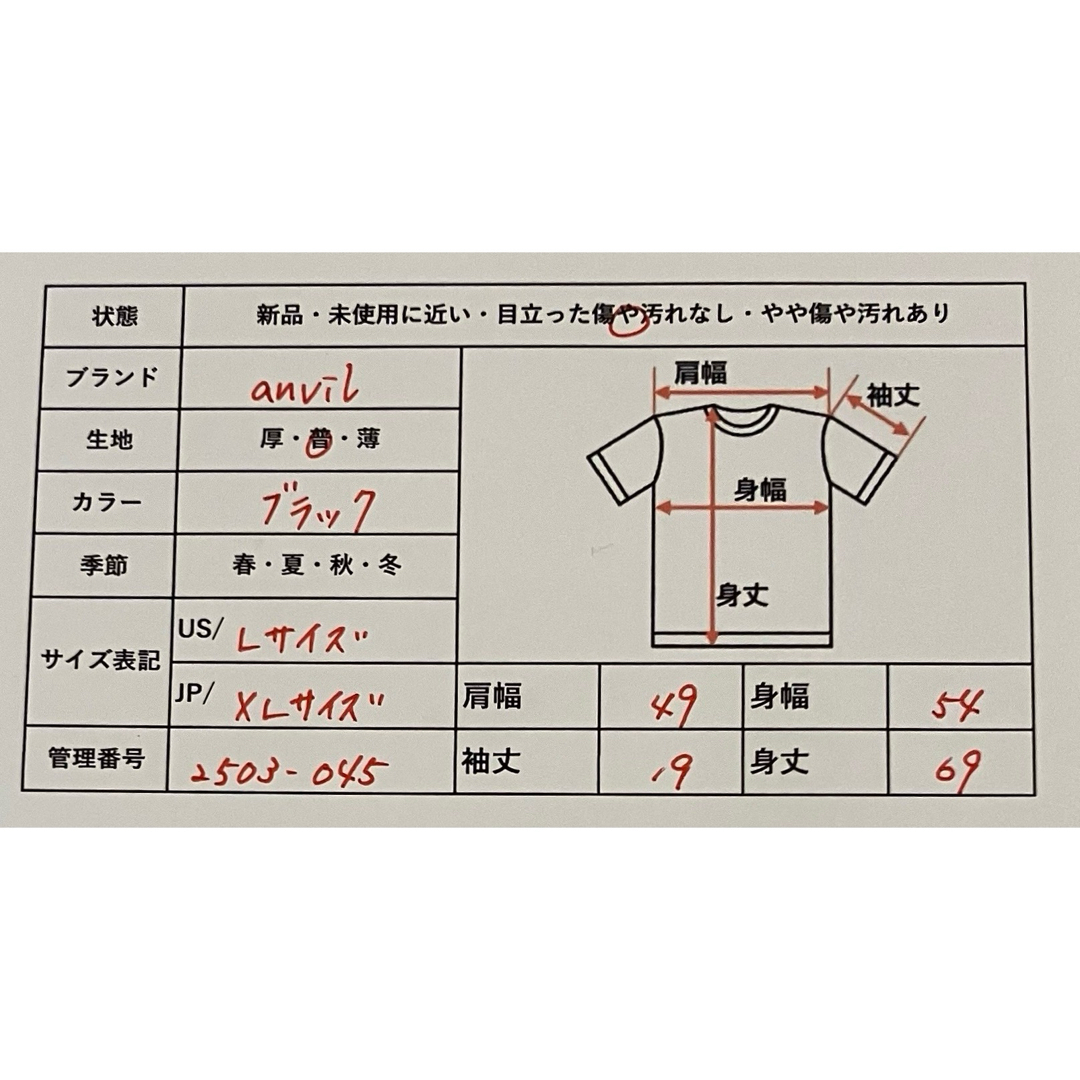 状態 新品・未使用に近い・目立った傷や汚れなし・やや傷や汚れあり
ブランド anvil
生地 厚・普・薄
カラー ブラック
季節 春・夏・秋・冬
サイズ表記 US/ Lサイズ
JP/ XLサイズ
管理番号 2503-045
肩幅
袖丈
身幅
身丈
肩幅 49 身幅 54
袖丈 19 身丈 69